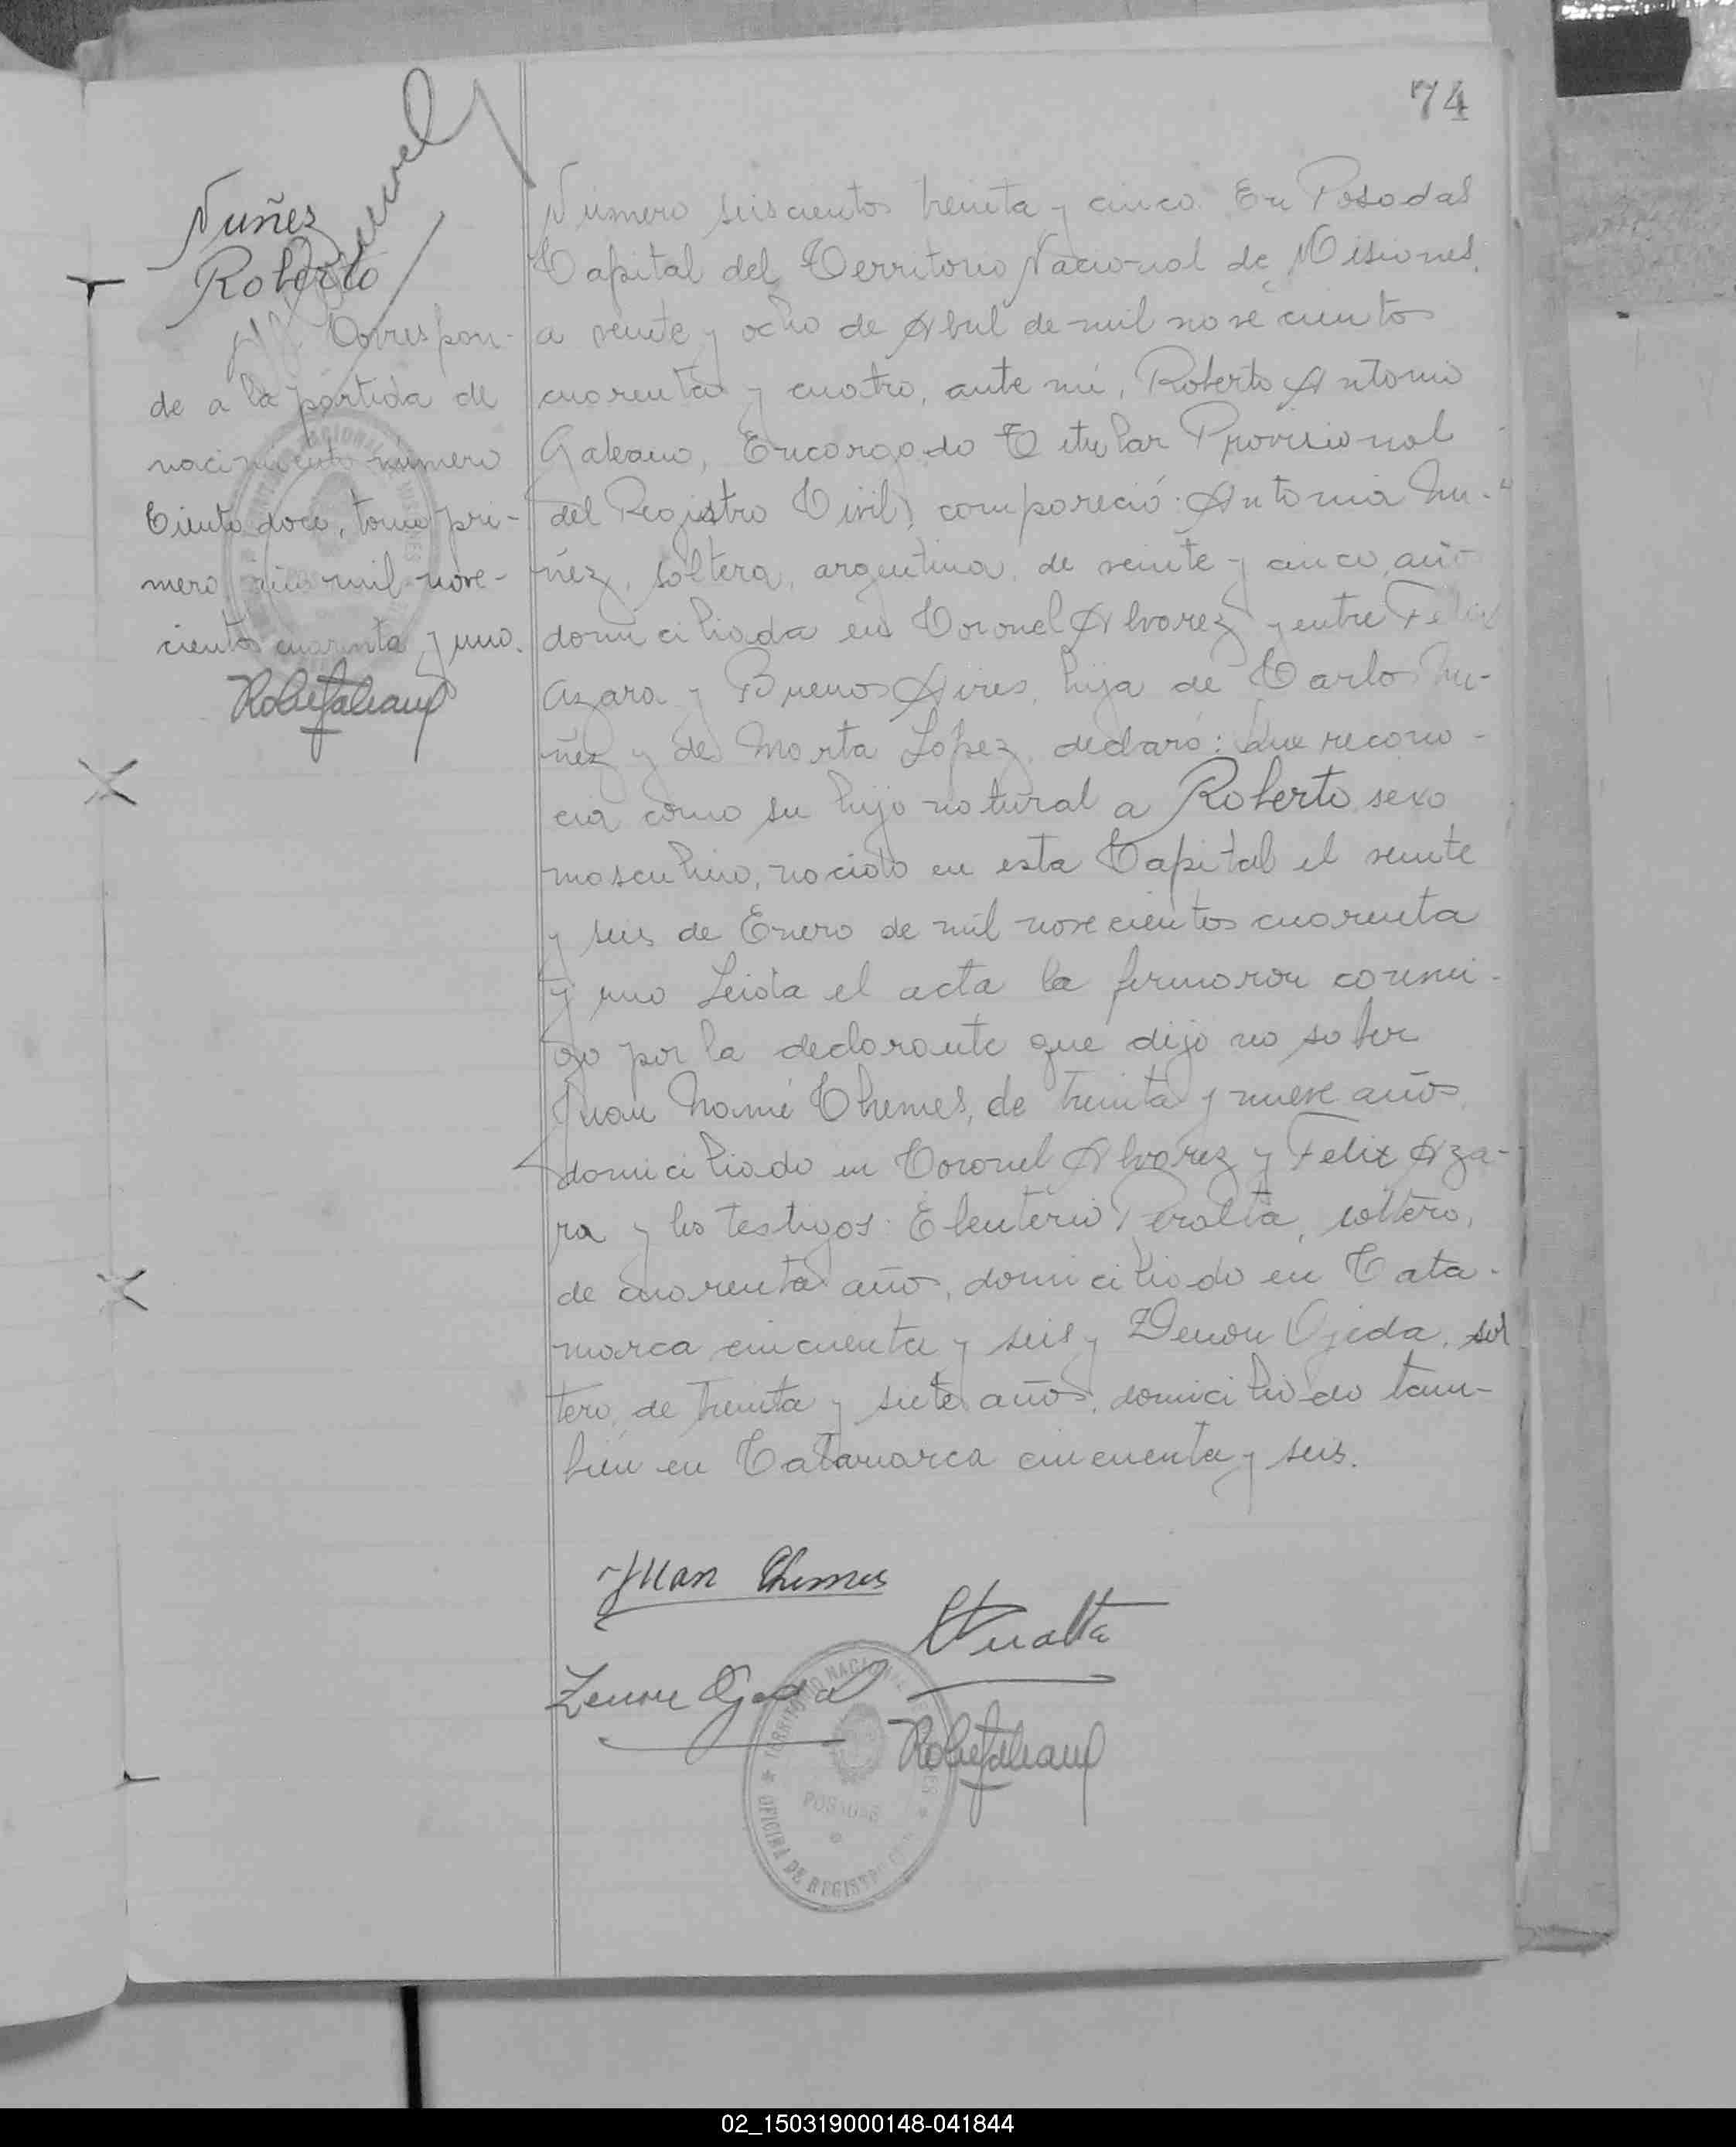 74
Nuñez
Roberto
Correspon-
de a la partida de
nacimiento número
Ciento doce, tomo pri-
mero año mil nove-
cientos cuarenta y uno.
Numero seiscientos treinta y cinco. En Posadas
Capital del Territorio Nacional de Misiones,
a veinte y ocho de Abril de mil novecientos
cuarenta y cuatro, ante mi, Roberto Antonio
Galeano, Encargado Titular Provisional
del Registro Civil, compareció: Antonia Nu-
ñez, soltera, argentina, de veinte y cinco años
domiciliada en Coronel Alvarez y entre Felix
Azara y Buenos Aires, hija de Carlos Nu-
ñez y de Marta Lopez, declaró: Que recono-
cia como su hijo natural a Roberto, sexo
masculino, nacido en esta Capital el veinte
y seis de Enero de mil novecientos cuarenta
y uno Leida el acta la firmaron conmi-
go por la declarante que dijo no saber
Juan Chemes, de treinta y nueve años,
domiciliado en Coronel Alvarez y Felix Aza-
ra y los testigos: Eleuterio Peralta, soltero,
de cuarenta años, domiciliado en Cata-
marca cincuenta y seis y Zenon Ojeda, sol
tero, de treinta y siete años, domiciliado tam-
bién en Catamarca cincuenta y seis.
Juan Chemes
Peralta
Zenon Ojeda
TERRITORIO NACIONAL DE MISIONES
POSADAS
OFICINA DE REGISTRO CIVIL
02_150319000148-041844